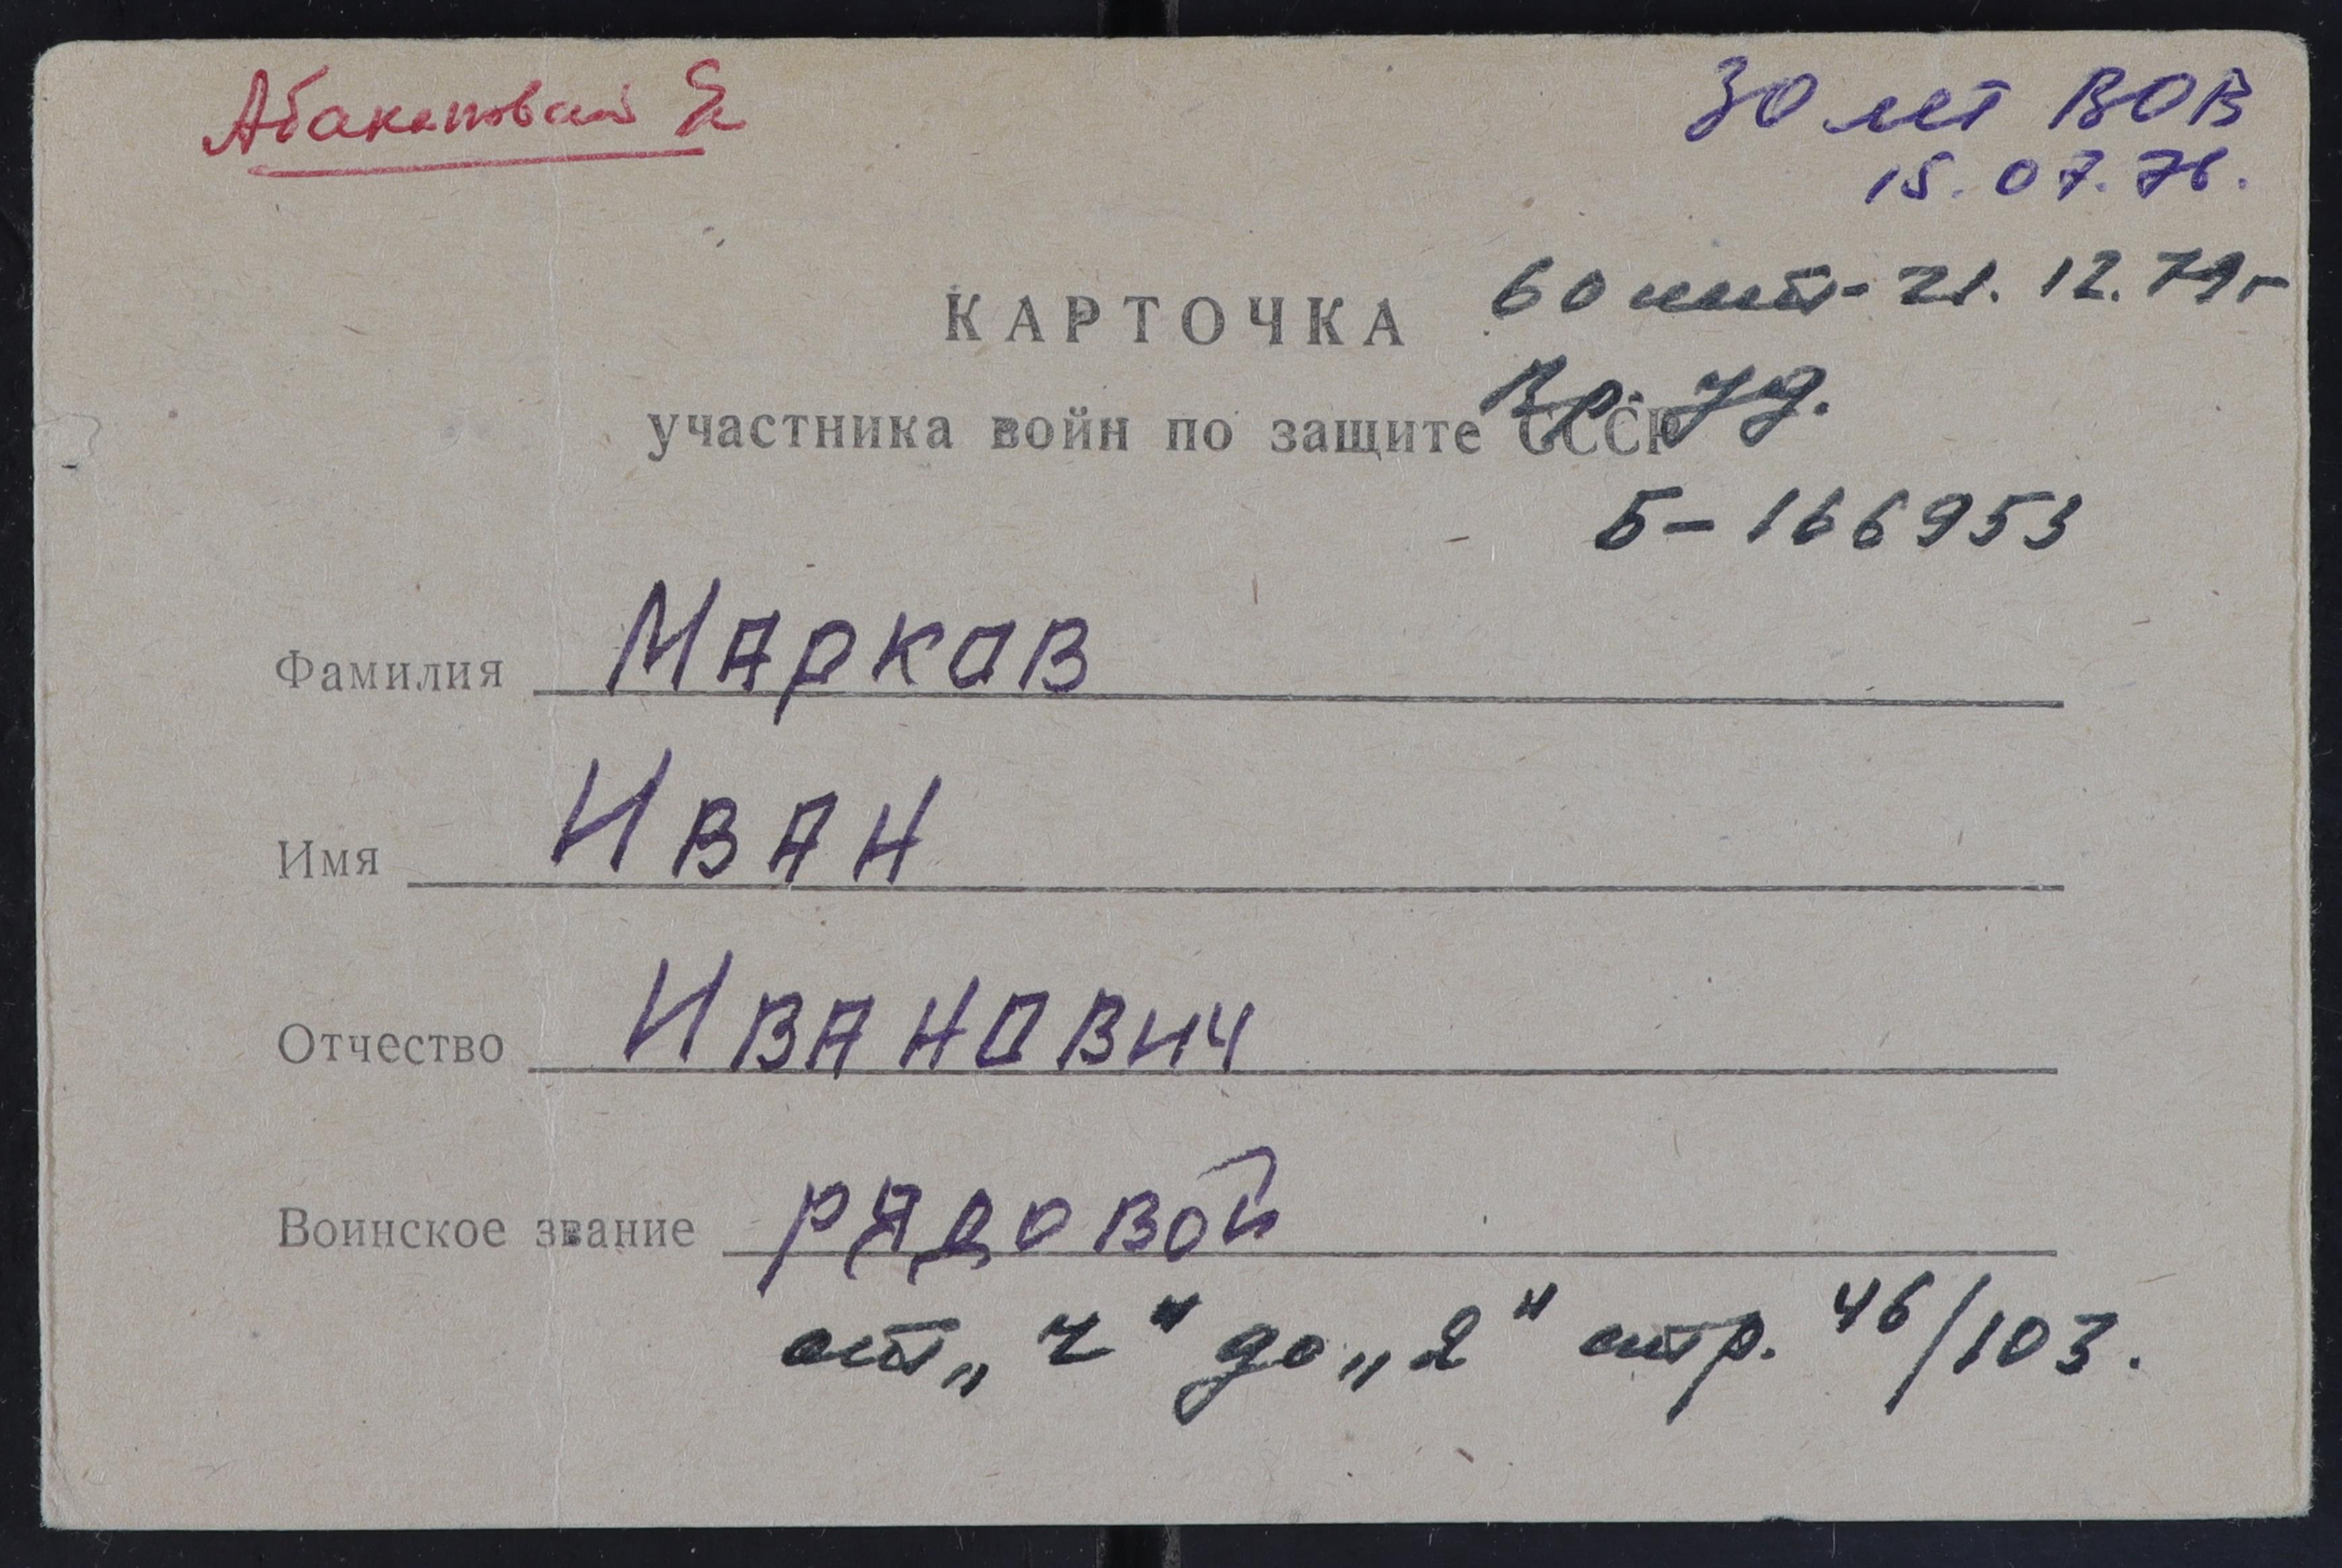 30 лет ВОВ
15.07.76.
КАРТОЧКА
60 - 21. 12. 79 г
участника войн по защите СССР
Вр. уд.
Б - 166953
Фамилия Марков
Имя Иван
Отчество Иванович
Воинское звание рядовой
от „Ч" до „Я" стр. 46/103.